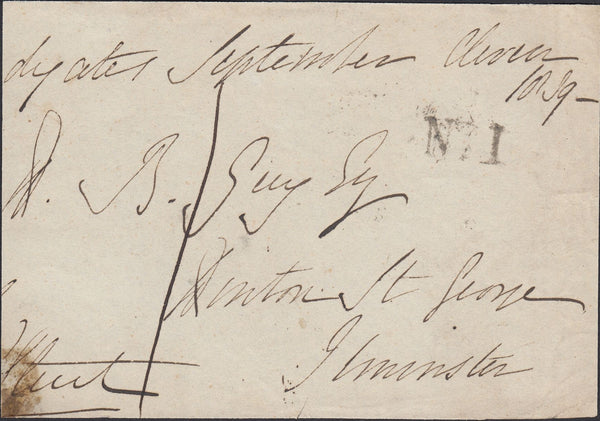 dgates September Eleven
1839
No. 1
B. Guy Esq
Hinton St George
Ilminster